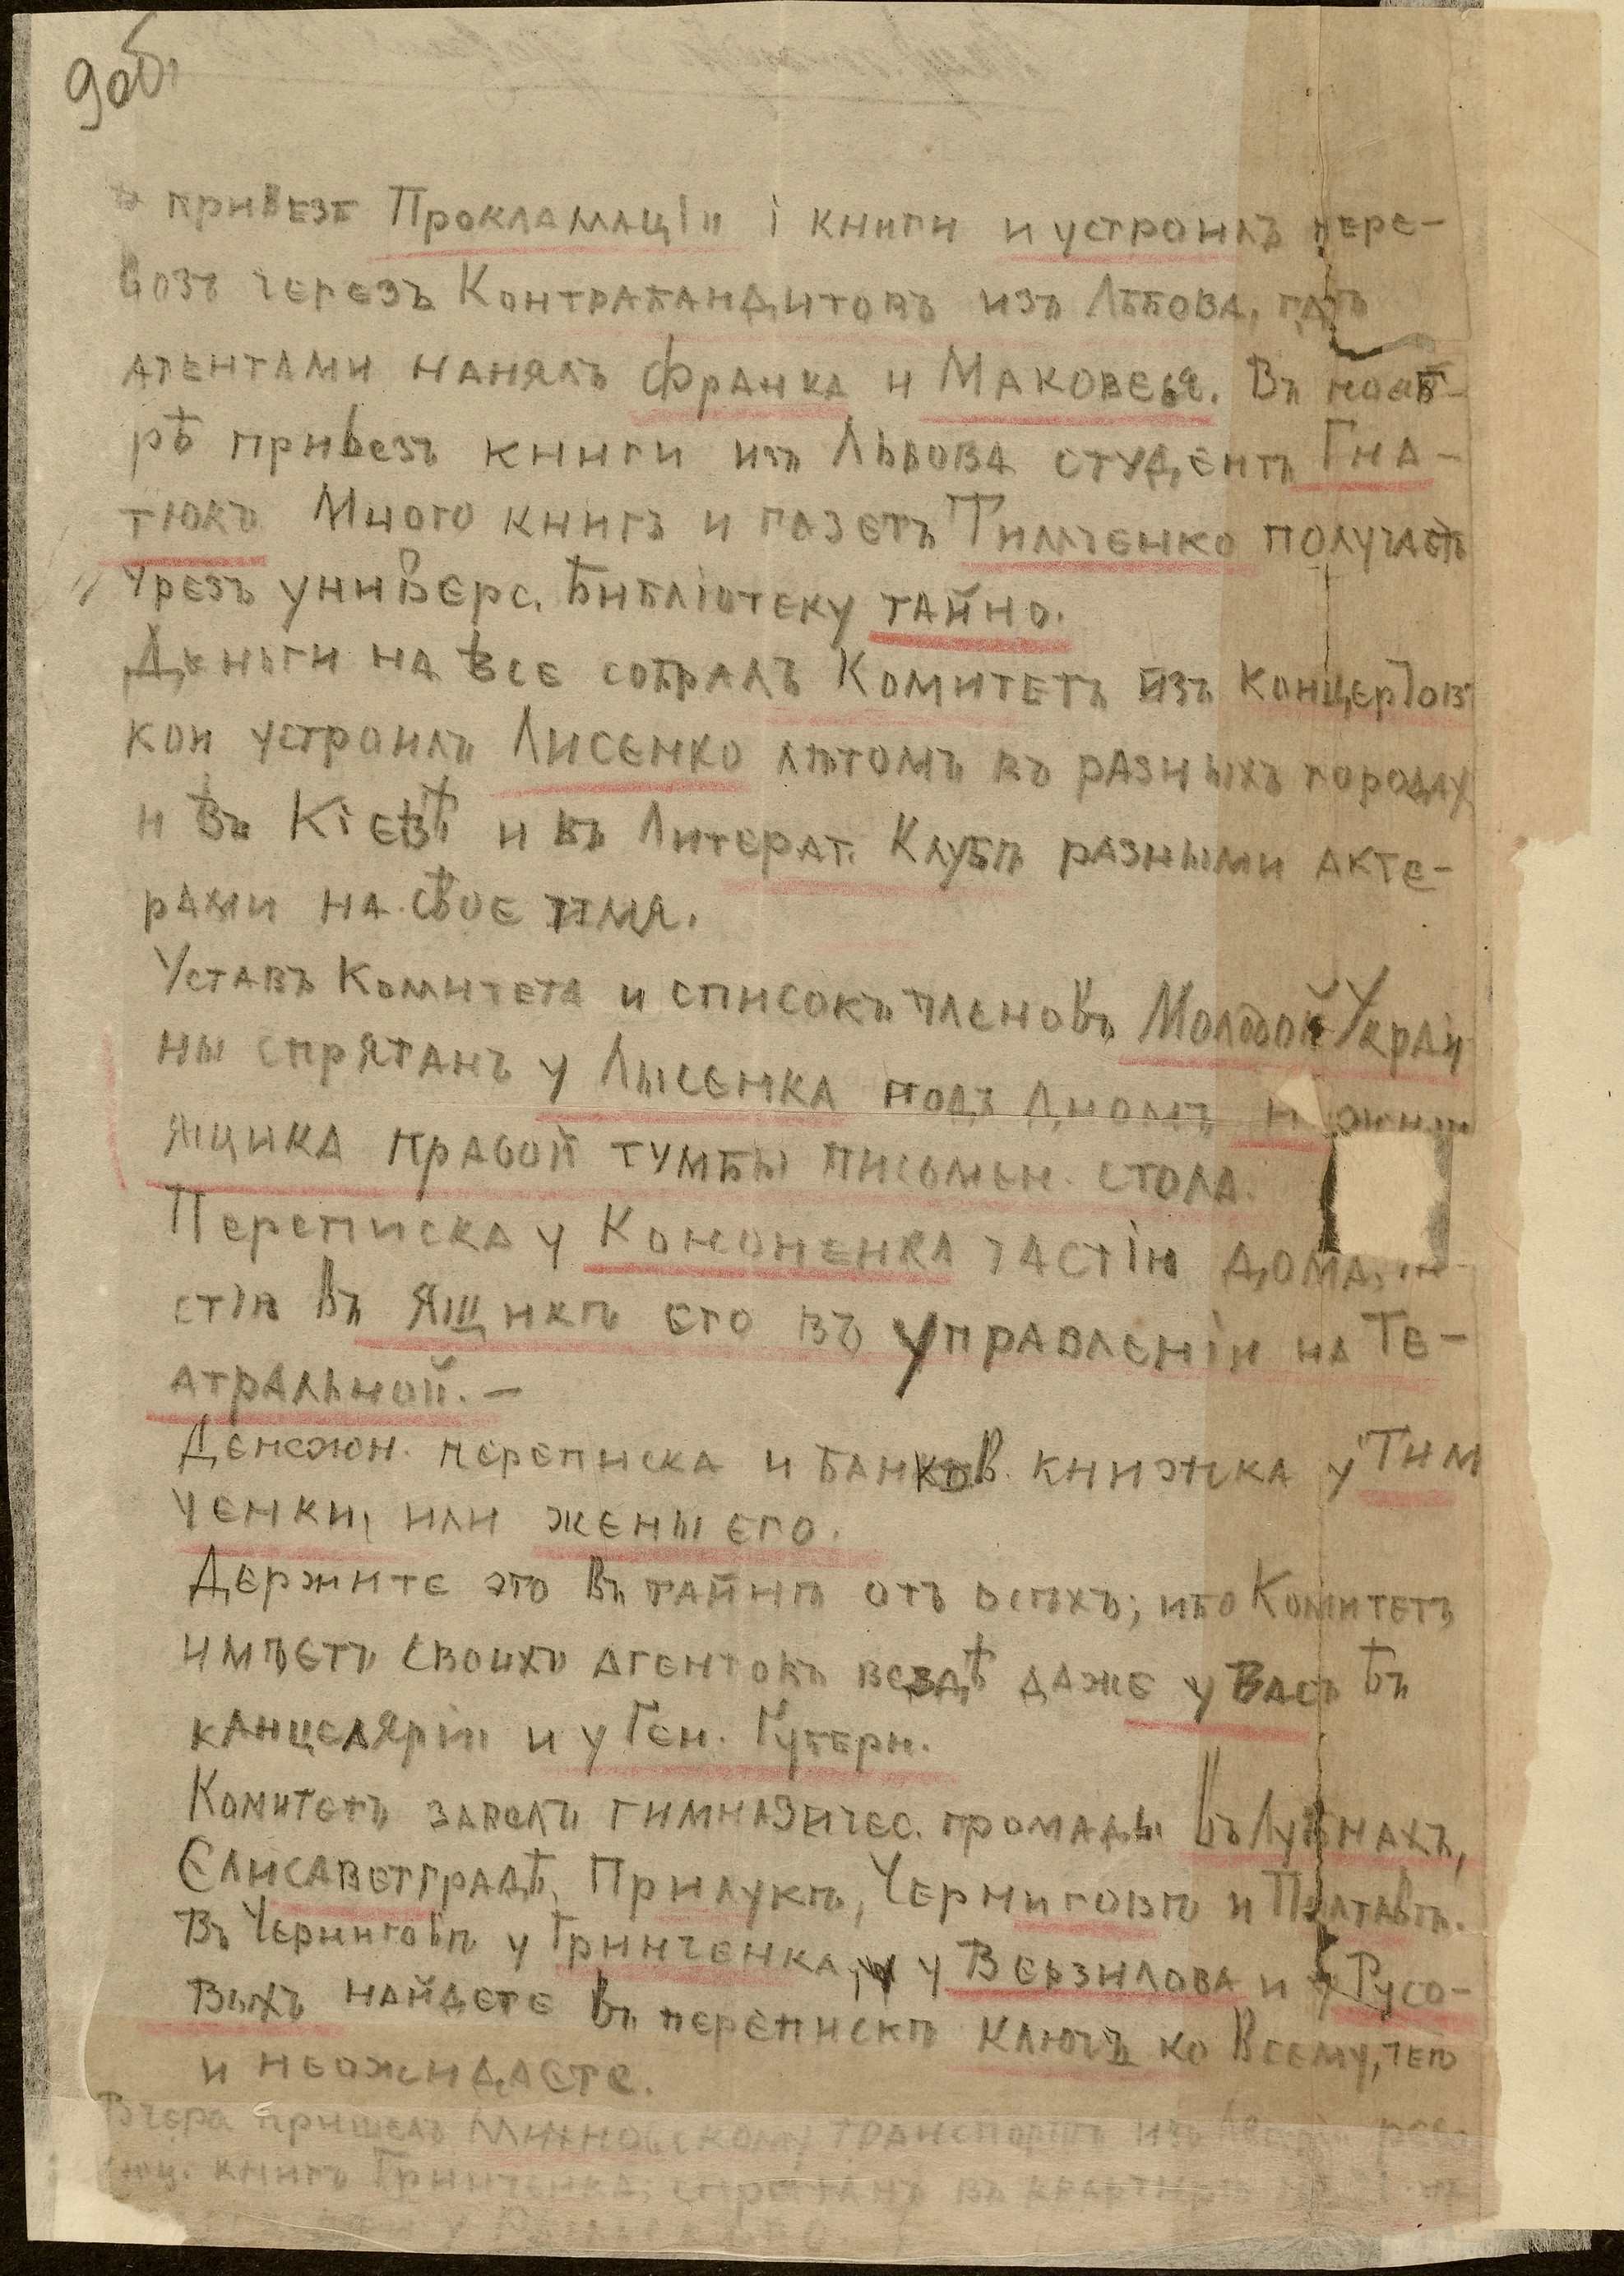 9об.
привезъ Прокламаціи і книги и устроилъ пере-
возъ черезъ Контрабандитовъ изъ Львова, гдѣ
агентами нанялъ Франка и Маковея. Въ нояб-
рѣ привезъ книги изъ Львова студентъ Гна-
тюкъ Много книгъ и газетъ Тимченко получаетъ
Чрезъ универс. библіотеку тайно.
Деньги на все собралъ Комитетъ изъ концертовъ
кои устроилъ Лисенко лѣтомъ въ разныхъ городах
и въ Кіевѣ и въ Литерат. Клубѣ разными акте-
рами на свое имя.
Уставъ Комитета и списокъ членовъ Молодой Украи
ны спрятанъ у Лысенка подъ дномъ нижн
ящика правой тумбы письмен. стола.
Переписка у Кононенка частію дома,
стію въ ящикѣ его въ управленіи на Те-
атральной.—
Денежн. переписка и банков. книжка у Тим
ченки, или жены его.
Держите это въ тайнѣ отъ всѣхъ; ибо Комитетъ
имѣетъ своихъ агентовъ вездѣ даже у Васъ въ
канцеляріи и у Ген. Губерн.
Комитетъ завелъ гимназичес. громады въ Лубнахъ,
Єлисаветградѣ, Прилукѣ, Черниговѣ и Полтавѣ.
Въ Черниговѣ у Гринченка, у Верзилова и у Русо-
выхъ найдете въ перепискѣ ключъ ко всему, чего
и неожидаете.
Вчера пришелъ Михновскому транспортъ изъ
книгъ Гринченка; спрятанъ въ квартирѣ
у